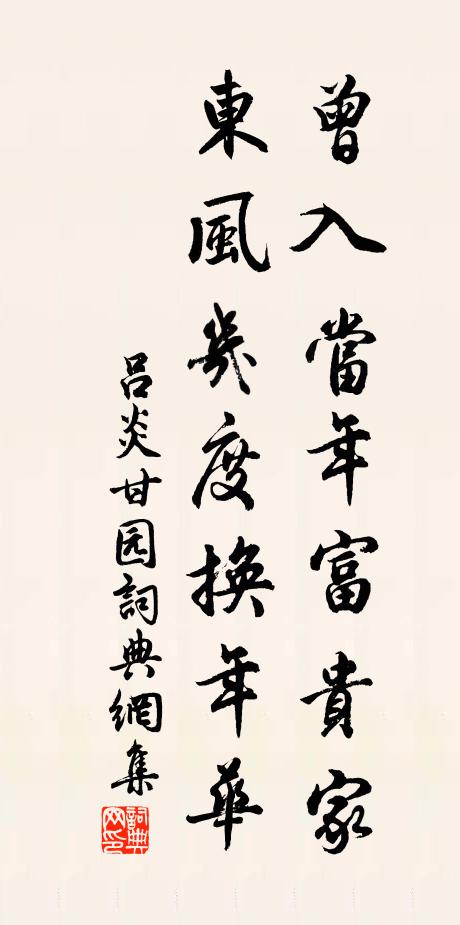 曾入當年富貴家
東風幾度換年華
吕炎甘园詞典網集
詞典网印